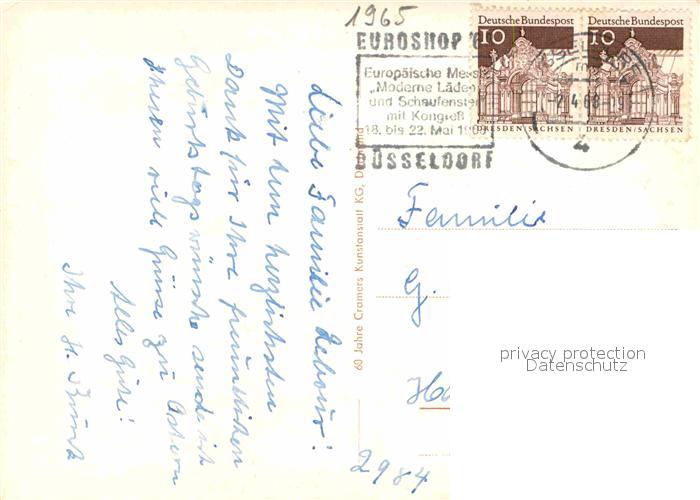 1965
EUROSHOP
Europäische Messe
„Moderne Läden
und Schaufenster
mit Kongreß
18. bis 22. Mai 19
DÜSSELDORF
Deutsche Bundespost
10
DRESDEN/SACHSEN
Deutsche Bundespost
10
DRESDEN/SACHSEN
-2.4.68
Liebe Familie
Mit dem herzlichsten
Dank für Ihre freundlichen
Geburtstagswünsche sende ich
Ihnen viele Grüsse zu Ostern
Alles Gute!
Ihre
60 Jahre Cramers Kunstanstalt KG, Dortmund
Familie
G.
privacy protection
Datenschutz
2984